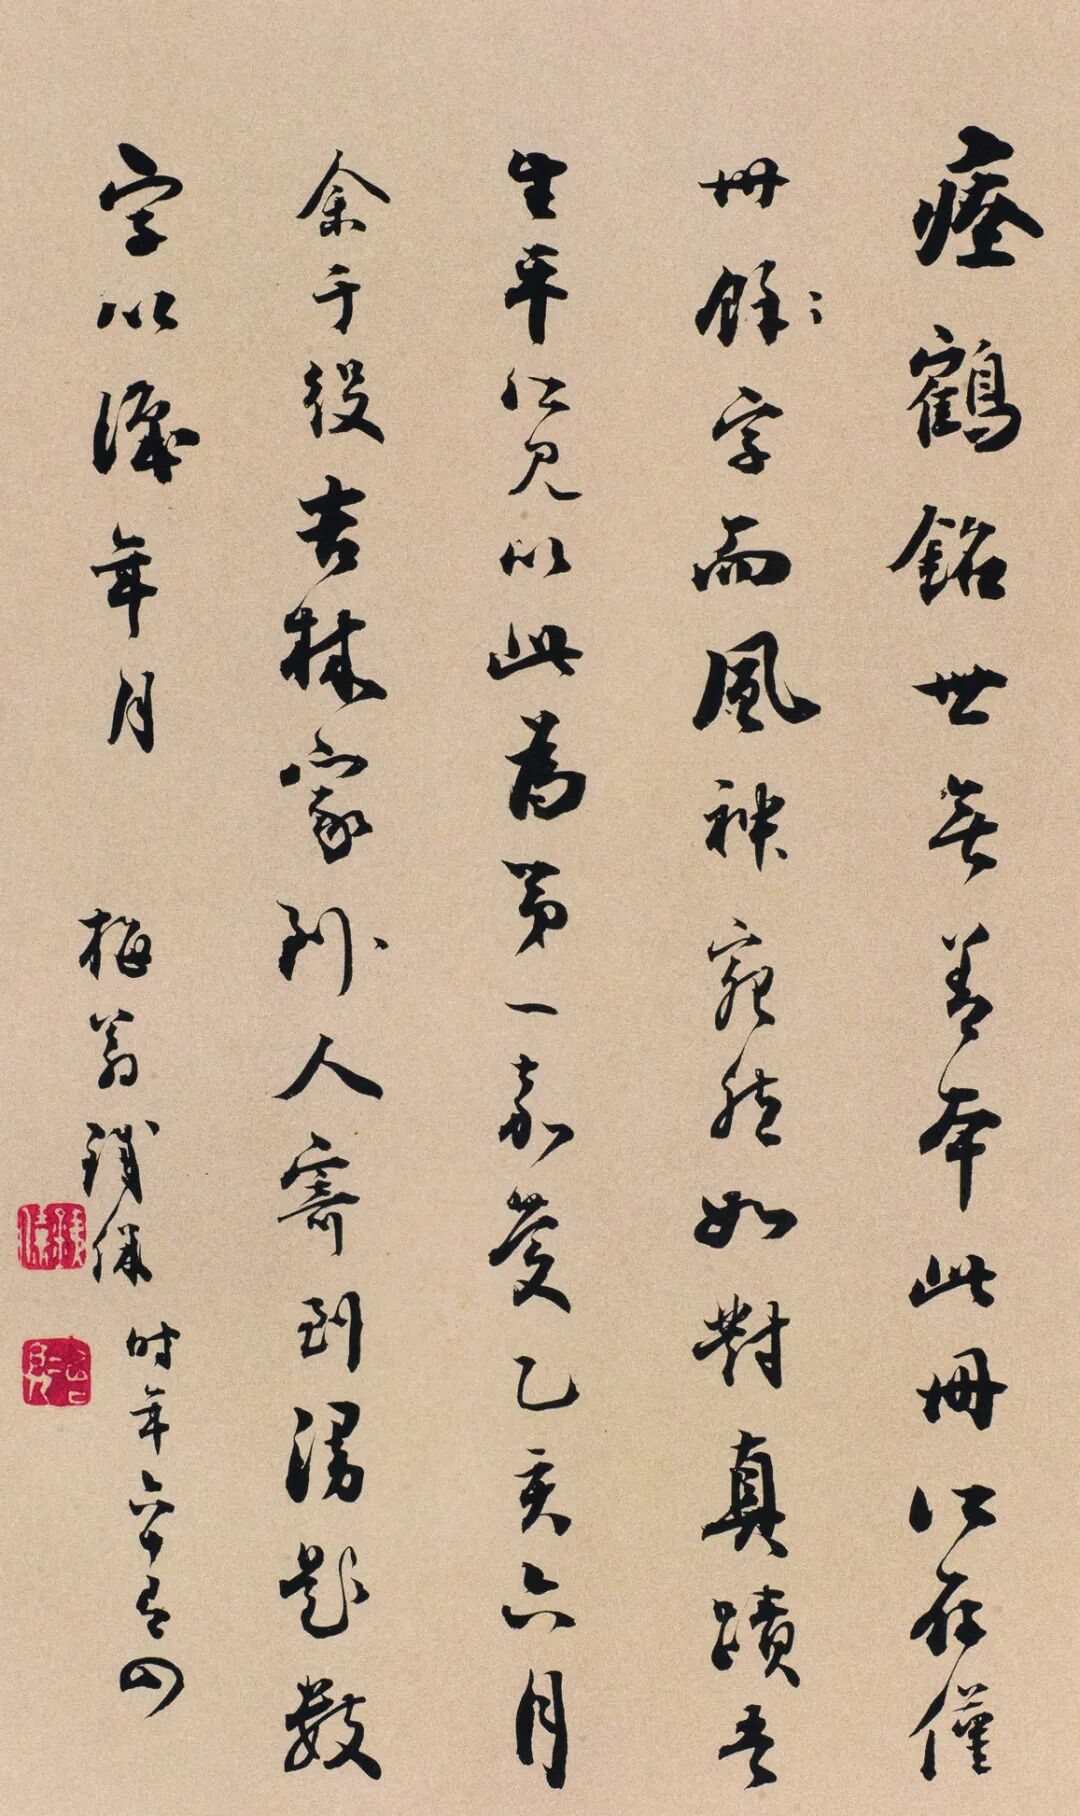 瘞鶴銘世無善本此冊所存僅
卅餘字而風神宛然如對真蹟吾
生平所見以此為第一嘉慶乙亥六月
余于役吉林家到人寄到漫題數
字以識年月
梅翁鐵保時年六十有四